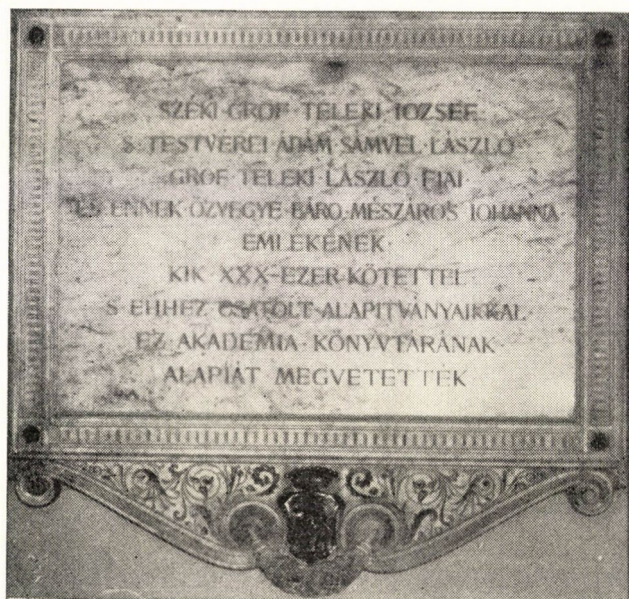 SZÉKI·GRÓF·TELEKI·IOZSEF
S·TESTVEREI·ÁDÁM·SÁMVEL·LÁSZLÓ
GRÓF·TELEKI·LÁSZLÓ·FIAI
ÉS·ENNEK·ÖZVEGYE·BÁRO·MÉSZÁROS·IOHANNA
EMLEKÉNEK·
KIK XXX-EZER·KÖTETTEL
S·EHHEZ CSATOLT·ALAPITVÁNYAIKKAL
EZ AKADEMIA·KÖNYVTÁRÁNAK·
ALAPIÁT MEGVETETTÉK